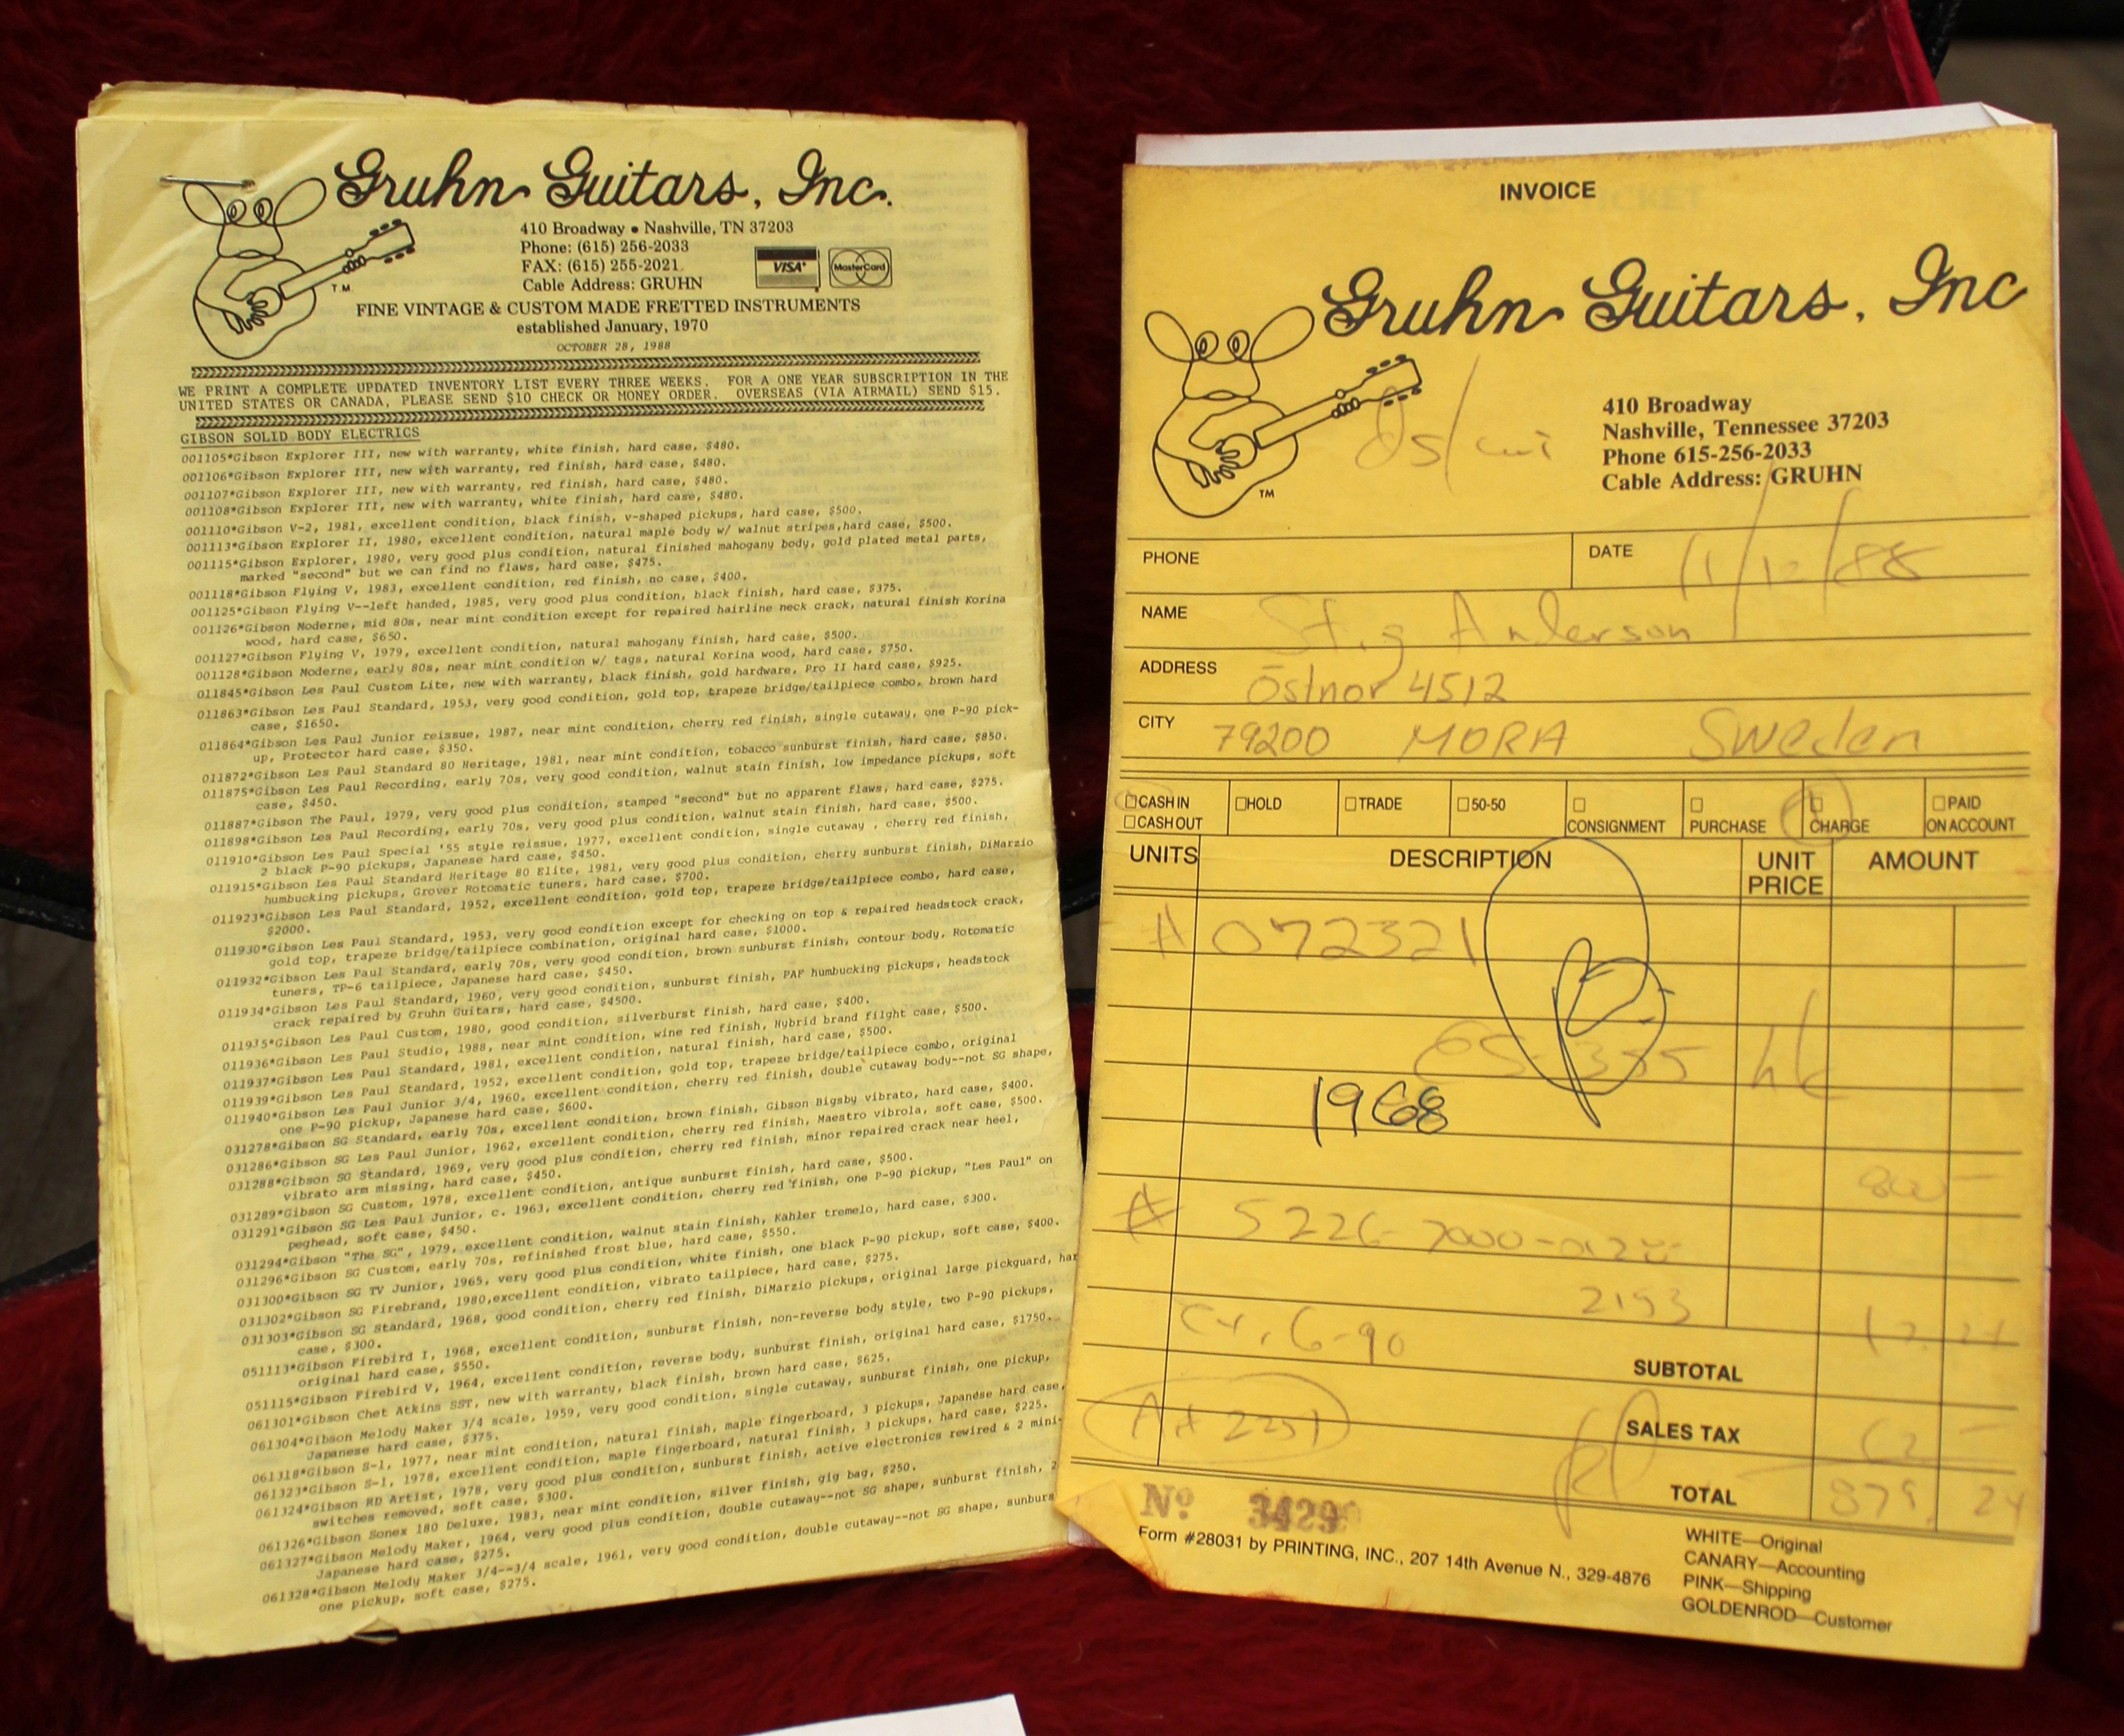 Gruhn Guitars, Inc.
410 Broadway • Nashville, TN 37203
Phone: (615) 256-2033
FAX: (615) 255-2021
Cable Address: GRUHN
VISA
MasterCard
T.M
FINE VINTAGE & CUSTOM MADE FRETTED INSTRUMENTS
established January, 1970
OCTOBER 28, 1988
WE PRINT A COMPLETE UPDATED INVENTORY LIST EVERY THREE WEEKS. FOR A ONE YEAR SUBSCRIPTION IN THE
UNITED STATES OR CANADA, PLEASE SEND $10 CHECK OR MONEY ORDER. OVERSEAS (VIA AIRMAIL) SEND $15.
GIBSON SOLID BODY ELECTRICS
001105*Gibson Explorer III, new with warranty, white finish, hard case, $480.
001106*Gibson Explorer III, new with warranty, red finish, hard case, $480.
001107*Gibson Explorer III, new with warranty, red finish, hard case, $480.
001108*Gibson Explorer III, new with warranty, white finish, hard case, $480.
001110*Gibson V-2, 1981, excellent condition, black finish, v-shaped pickups, hard case, $500.
001113*Gibson Explorer II, 1980, excellent condition, natural maple body w/ walnut stripes,hard case, $500.
001115*Gibson Explorer, 1980, very good plus condition, natural finished mahogany body, gold plated metal parts,
marked "second" but we can find no flaws, hard case, $475.
001118*Gibson Flying V, 1983, excellent condition, red finish, no case, $400.
001125*Gibson Flying V--left handed, 1985, very good plus condition, black finish, hard case, $375.
001126*Gibson Moderne, mid 80s, near mint condition except for repaired hairline neck crack, natural finish Korina
wood, hard case, $650.
001127*Gibson Flying V, 1979, excellent condition, natural mahogany finish, hard case, $500.
001128*Gibson Moderne, early 80s, near mint condition w/ tags, natural Korina wood, hard case, $750.
011845*Gibson Les Paul Custom Lite, new with warranty, black finish, gold hardware, Pro II hard case, $925.
011863*Gibson Les Paul Standard, 1953, very good condition, gold top, trapeze bridge/tailpiece combo, brown hard
case, $1650.
011864*Gibson Les Paul Junior reissue, 1987, near mint condition, cherry red finish, single cutaway, one P-90 pick-
up, Protector hard case, $350.
011872*Gibson Les Paul Standard 80 Heritage, 1981, near mint condition, tobacco sunburst finish, hard case, $850.
011875*Gibson Les Paul Recording, early 70s, very good condition, walnut stain finish, low impedance pickups, soft
case, $450.
011887*Gibson The Paul, 1979, very good plus condition, stamped "second" but no apparent flaws, hard case, $275.
011898*Gibson Les Paul Recording, early 70s, very good plus condition, walnut stain finish, hard case, $500.
011910*Gibson Les Paul Special '55 style reissue, 1977, excellent condition, single cutaway , cherry red finish,
2 black P-90 pickups, Japanese hard case, $450.
011915*Gibson Les Paul Standard Heritage 80 Elite, 1981, very good plus condition, cherry sunburst finish, DiMarzio
humbucking pickups, Grover Rotomatic tuners, hard case, $700.
011923*Gibson Les Paul Standard, 1952, excellent condition, gold top, trapeze bridge/tailpiece combo, hard case,
$2000.
011930*Gibson Les Paul Standard, 1953, very good condition except for checking on top & repaired headstock crack,
gold top, trapeze bridge/tailpiece combination, original hard case, $1000.
011932*Gibson Les Paul Standard, early 70s, very good condition, brown sunburst finish, contour body, Rotomatic
tuners, TP-6 tailpiece, Japanese hard case, $450.
011934*Gibson Les Paul Standard, 1960, very good condition, sunburst finish, PAF humbucking pickups, headstock
crack repaired by Gruhn Guitars, hard case, $4500.
011935*Gibson Les Paul Custom, 1980, good condition, silverburst finish, hard case, $400.
011936*Gibson Les Paul Studio, 1988, near mint condition, wine red finish, Hybrid brand flight case, $500.
011937*Gibson Les Paul Standard, 1981, excellent condition, natural finish, hard case, $500.
011939*Gibson Les Paul Standard, 1952, excellent condition, gold top, trapeze bridge/tailpiece combo, original
011940*Gibson Les Paul Junior 3/4, 1960, excellent condition, cherry red finish, double cutaway body--not SG shape,
one P-90 pickup, Japanese hard case, $600.
031278*Gibson SG Standard, early 70s, excellent condition, brown finish, Gibson Bigsby vibrato, hard case, $400.
031286*Gibson SG Les Paul Junior, 1962, excellent condition, cherry red finish, Maestro vibrola, soft case, $500.
031288*Gibson SG Standard, 1969, very good plus condition, cherry red finish, minor repaired crack near heel,
vibrato arm missing, hard case, $450.
031289*Gibson SG Custom, 1978, excellent condition, antique sunburst finish, hard case, $500.
031291*Gibson SG Les Paul Junior, c. 1963, excellent condition, cherry red finish, one P-90 pickup, "Les Paul" on
peghead, soft case, $450.
031294*Gibson "The SG", 1979, excellent condition, walnut stain finish, Kahler tremelo, hard case, $300.
031296*Gibson SG Custom, early 70s, refinished frost blue, hard case, $550.
031300*Gibson SG TV Junior, 1965, very good plus condition, white finish, one black P-90 pickup, soft case, $400.
031302*Gibson SG Firebrand, 1980,excellent condition, vibrato tailpiece, hard case, $275.
031303*Gibson SG Standard, 1968, good condition, cherry red finish, DiMarzio pickups, original large pickguard, har
case, $300.
051113*Gibson Firebird I, 1968, excellent condition, sunburst finish, non-reverse body style, two P-90 pickups,
original hard case, $550.
051115*Gibson Firebird V, 1964, excellent condition, reverse body, sunburst finish, original hard case, $1750.
061301*Gibson Chet Atkins SST, new with warranty, black finish, brown hard case, $625.
061304*Gibson Melody Maker 3/4 scale, 1959, very good condition, single cutaway, sunburst finish, one pickup,
Japanese hard case, $375.
061318*Gibson S-1, 1977, near mint condition, natural finish, maple fingerboard, 3 pickups, Japanese hard case,
061323*Gibson S-1, 1978, excellent condition, maple fingerboard, natural finish, 3 pickups, hard case, $225.
061324*Gibson RD Artist, 1978, very good plus condition, sunburst finish, active electronics rewired & 2 mini-
switches removed, soft case, $300.
061326*Gibson Sonex 180 Deluxe, 1983, near mint condition, silver finish, gig bag, $250.
061327*Gibson Melody Maker, 1964, very good plus condition, double cutaway--not SG shape, sunburst finish, 2
Japanese hard case, $275.
061328*Gibson Melody Maker 3/4--3/4 scale, 1961, very good condition, double cutaway--not SG shape, sunburs
one pickup, soft case, $275.
INVOICE
Gruhn Guitars, Inc
TM
410 Broadway
Nashville, Tennessee 37203
Phone 615-256-2033
Cable Address: GRUHN
PHONE
DATE 11/12/88
NAME Stig Anderson
ADDRESS Östnor 4512
CITY 79200 MORA Sweden
CASH IN
CASH OUT
HOLD
TRADE
50-50
CONSIGNMENT
PURCHASE
CHARGE
PAID
ON ACCOUNT
UNITS DESCRIPTION UNIT PRICE AMOUNT
A 072321
ES-355
1968
2193
6-90
SUBTOTAL
SALES TAX
TOTAL 879 24
Nº 3429
Form #28031 by PRINTING, INC., 207 14th Avenue N., 329-4876
WHITE—Original
CANARY—Accounting
PINK—Shipping
GOLDENROD—Customer